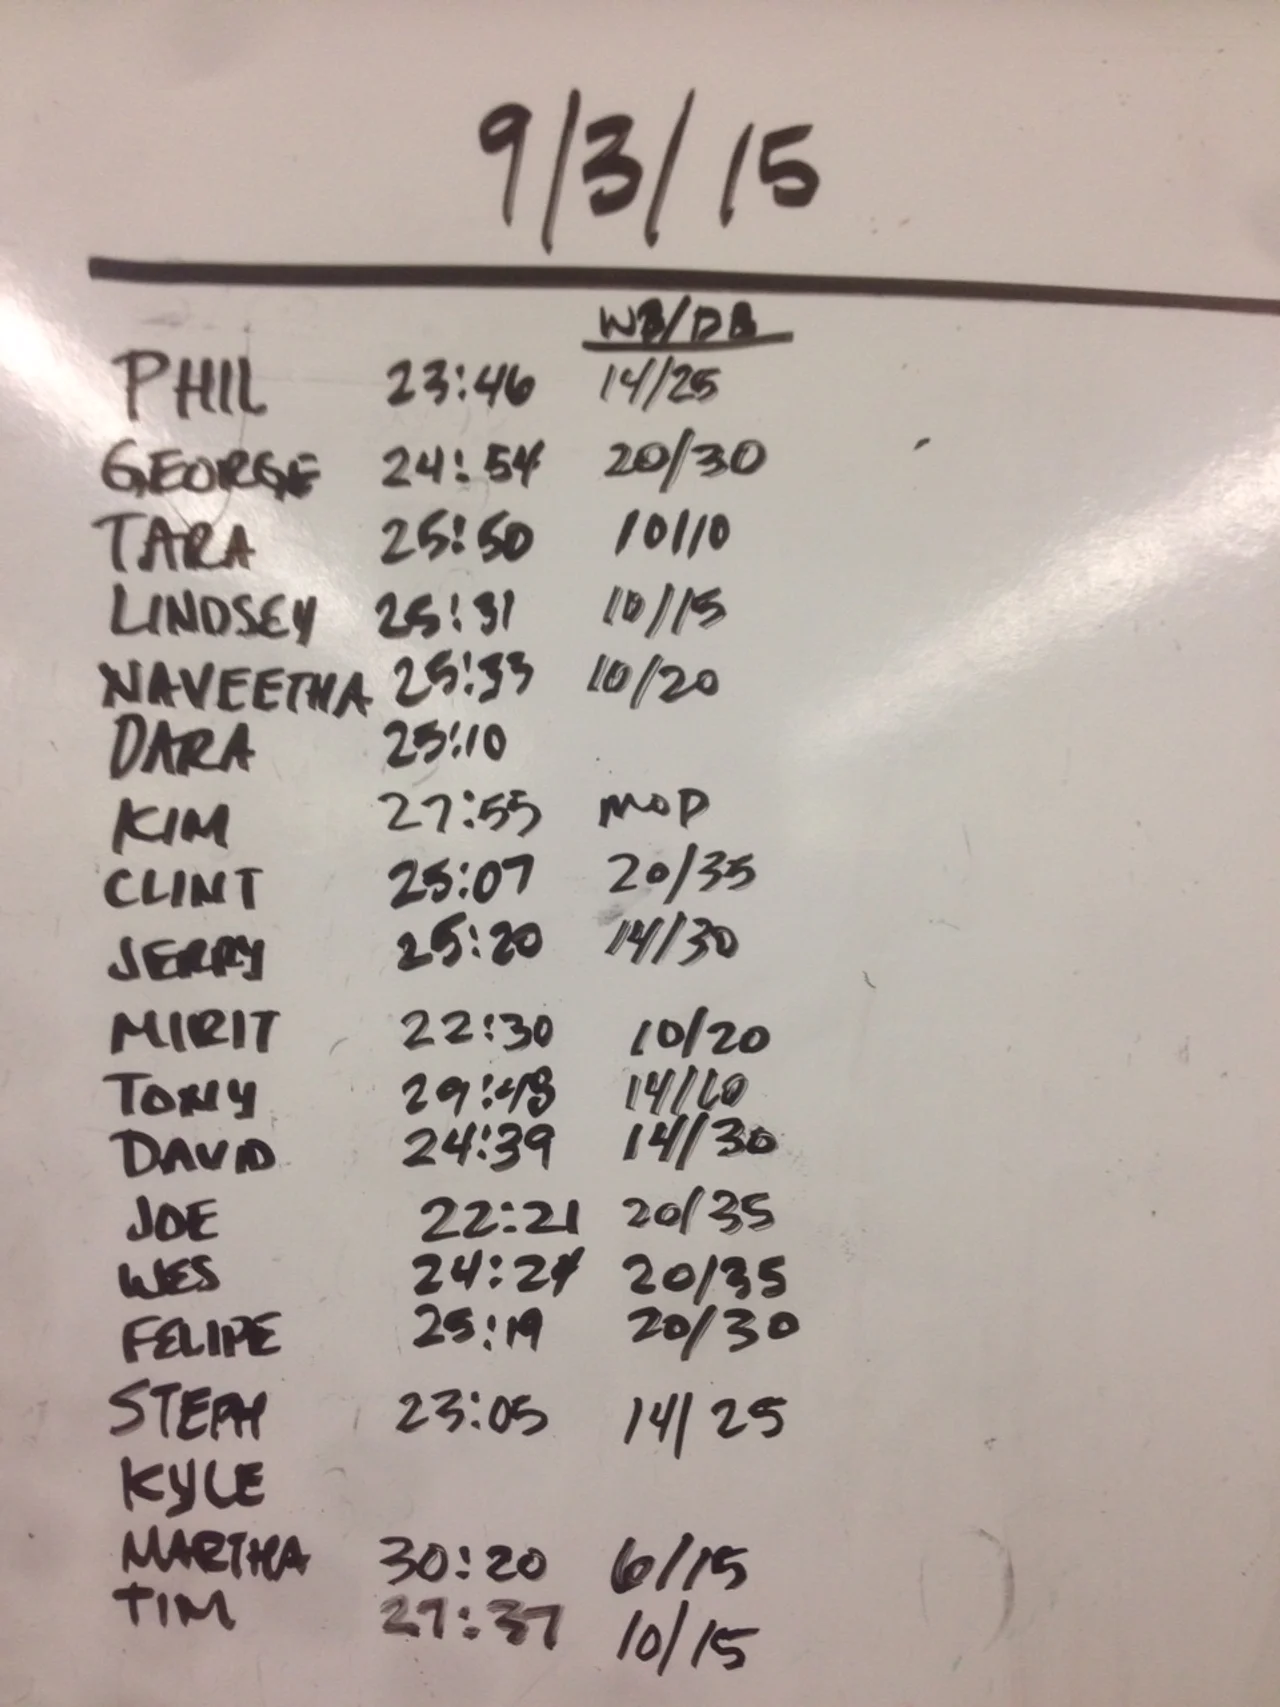 9/3/15
WB/DB
PHIL 23:46 14/25
GEORGE 24:54 20/30
TARA 25:50 10/10
LINDSEY 25:31 10/15
NAVEETHA 25:33 10/20
DARA 25:10
KIM 27:55 MOD
CLINT 25:07 20/35
JERRY 25:20 14/30
MIRIT 22:30 10/20
TONY 29:48 14/10
DAVID 24:39 14/30
JOE 22:21 20/35
WES 24:24 20/35
FELIPE 25:19 20/30
STEPH 23:05 14/25
KYLE
MARTHA 30:20 6/15
TIM 27:37 10/15